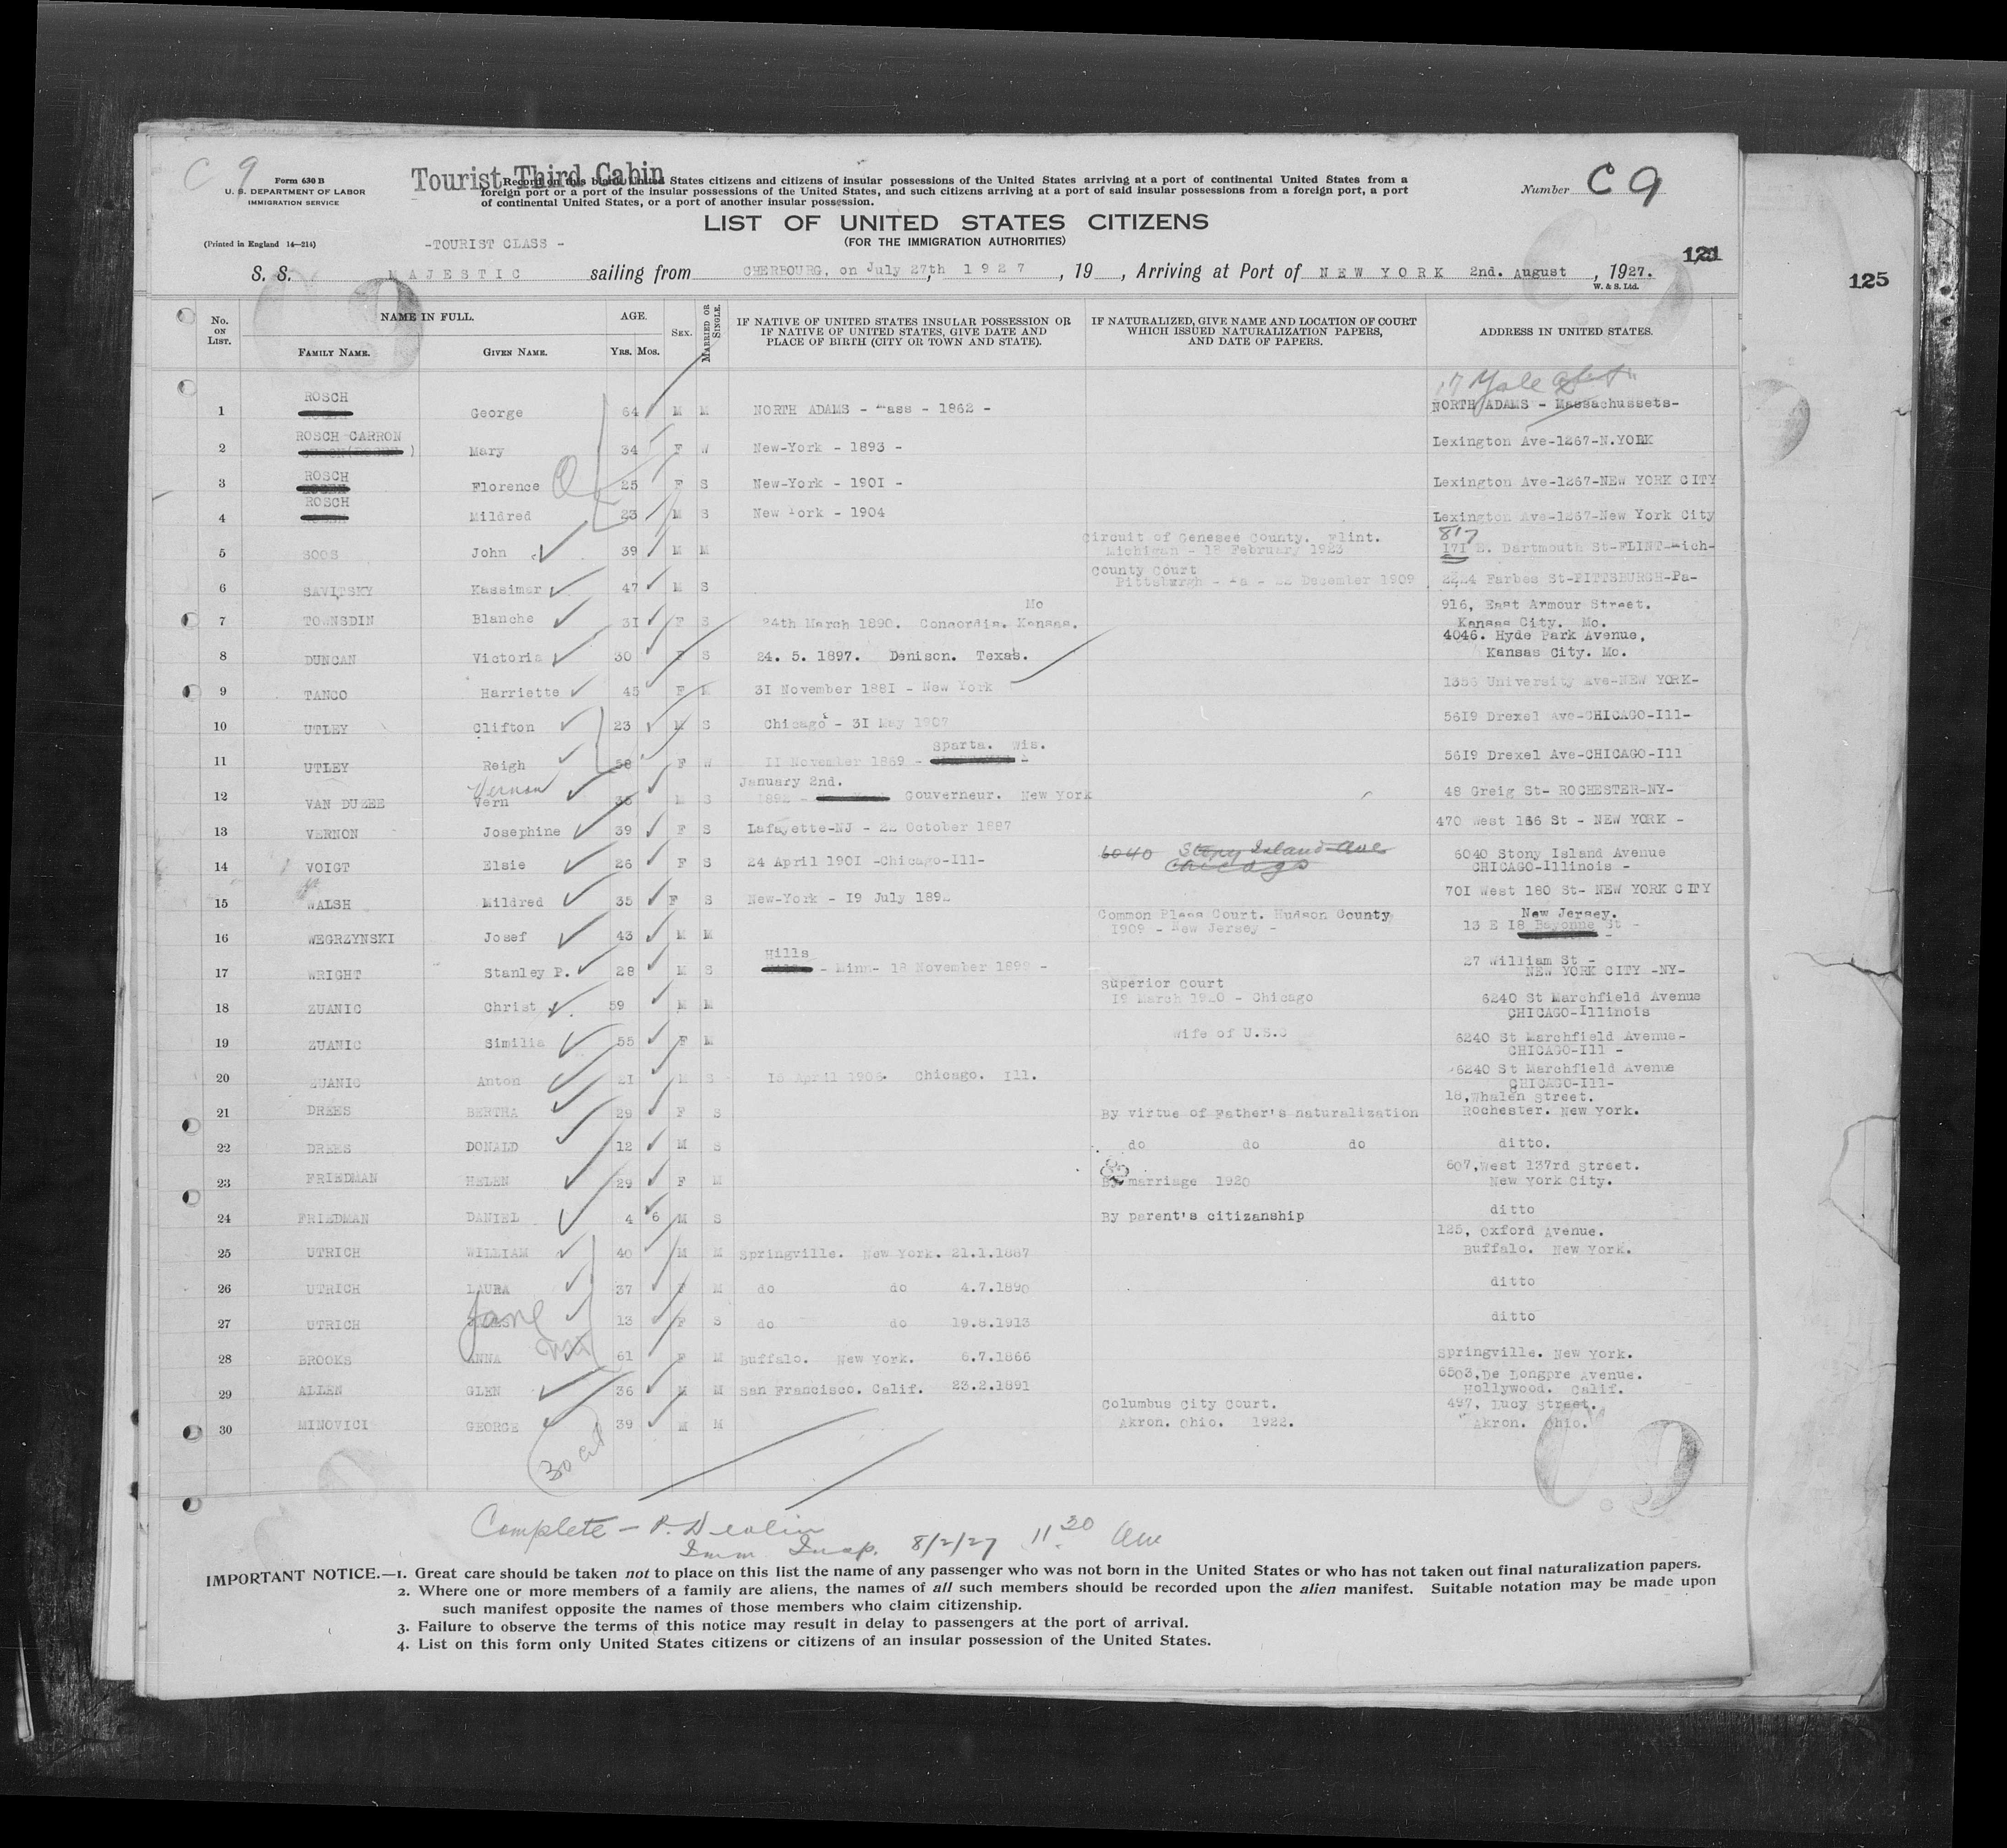 C 9
Form 630 B
U. S. DEPARTMENT OF LABOR
IMMIGRATION SERVICE
(Printed in England 14—214)
Tourist Third Cabin
Record on this blank United States citizens and citizens of insular possessions of the United States arriving at a port of continental United States from a
foreign port or a port of the insular possessions of the United States, and such citizens arriving at a port of said insular possessions from a foreign port, a port
of continental United States, or a port of another insular possession.
Number C 9
LIST OF UNITED STATES CITIZENS
(FOR THE IMMIGRATION AUTHORITIES)
-TOURIST CLASS -
121
125
S. S. MAJESTIC sailing from CHERBOURG, on July 27th 1927, 19 , Arriving at Port of NEW YORK 2nd. August, 1927.
W. & S. Ltd.
No. ON LIST. NAME IN FULL. FAMILY NAME. GIVEN NAME. AGE. YRS. MOS. SEX. MARRIED OR SINGLE. IF NATIVE OF UNITED STATES INSULAR POSSESSION OR IF NATIVE OF UNITED STATES, GIVE DATE AND PLACE OF BIRTH (CITY OR TOWN AND STATE). IF NATURALIZED, GIVE NAME AND LOCATION OF COURT WHICH ISSUED NATURALIZATION PAPERS, AND DATE OF PAPERS. ADDRESS IN UNITED STATES.
17 Yale
1 ROSCH George 64 M M NORTH ADAMS - Mass - 1862 - NORTH ADAMS - Massachussets-
2 ROSCH CARRON Mary 34 F W New-York - 1893 - Lexington Ave-1267-N.YORK
3 ROSCH Florence 25 F S New-York - 1901 - Lexington Ave-1267-NEW YORK CITY
4 ROSCH Mildred 23 M S New York - 1904 Lexington Ave-1267-New York City
5 SOOS John 39 M M Circuit of Genesee County. Flint. Michigan - 18 February 1923 817 171 E. Dartmouth St-FLINT-Mich-
6 SAVITSKY Kassimer 47 M S County Court Pittsburgh - Pa - 22 December 1909 2224 Farbes St-PITTSBURGH-Pa-
7 TOWNSDIN Blanche 31 F S 24th March 1890. Concordia. Kansas. Mo 916, East Armour Street. Kansas City. Mo.
8 DUNCAN Victoria 30 F S 24. 5. 1897. Denison. Texas. 4046. Hyde Park Avenue, Kansas City. Mo.
9 TANCO Harriette 45 F M 31 November 1881 - New York University Ave-NEW YORK-
10 UTLEY Clifton 23 M S Chicago - 31 May 1907 5619 Drexel Ave-CHICAGO-Ill-
11 UTLEY Reigh 58 F W 11 November 1869 - Sparta. Wis. 5619 Drexel Ave-CHICAGO-Ill
12 VAN DUZEE Vern Vernon M S January 2nd. 1892 - Gouverneur. New York 48 Greig St- ROCHESTER-NY-
13 VERNON Josephine 39 F S Lafayette-NJ - 22 October 1887 470 West 166 St - NEW YORK -
14 VOIGT Elsie 26 F S 24 April 1901 -Chicago-Ill- 6040 Stony Island Ave Chicago 6040 Stony Island Avenue CHICAGO-Illinois -
15 WALSH Mildred 35 F S New-York - 19 July 1892 701 West 180 St- NEW YORK CITY
16 WEGRZYNSKI Josef 43 M M Common Pleas Court. Hudson County 1909 - New Jersey - New Jersey. 13 E 18 Bayonne St -
17 WRIGHT Stanley P. 28 M S Hills - Minn- 18 November 1898 - 27 William St - NEW YORK CITY -NY-
18 ZUANIC Christ 59 M M Superior Court 19 March 1920 - Chicago 6240 St Marchfield Avenue CHICAGO-Illinois
19 ZUANIC Similia 55 F M Wife of U.S.C 6240 St Marchfield Avenue- CHICAGO-Ill -
20 ZUANIC Anton 21 M S 15 April 1906. Chicago. Ill. 6240 St Marchfield Avenue CHICAGO-Ill-
21 DREES BERTHA 29 F S By virtue of Father's naturalization 18,Whalen Street. Rochester. New York.
22 DREES DONALD 12 M S do do do ditto.
23 FRIEDMAN HELEN 29 F M By marriage 1920 607,West 137rd Street. New York City.
24 FRIEDMAN DANIEL 4 6 M S By parent's citizanship ditto
25 UTRICH WILLIAM 40 M M Springville. New York. 21.1.1887 125, Oxford Avenue. Buffalo. New York.
26 UTRICH LAURA 37 F M do do 4.7.1890 ditto
27 UTRICH Jane 13 F S do do 19.8.1913 ditto
28 BROOKS ANNA 61 F M Buffalo. New York. 6.7.1866 Springville. New York.
29 ALLEN GLEN 36 M M San Francisco. Calif. 23.2.1891 6503,De Longpre Avenue. Hollywood. Calif.
30 MINOVICI GEORGE 39 M M Columbus City Court. Akron. Ohio. 1922. 497, Lucy Street. Akron. Ohio.
30
Complete - P. Devlin
Imm. Insp. 8/2/27 11 30 am
IMPORTANT NOTICE.—1. Great care should be taken not to place on this list the name of any passenger who was not born in the United States or who has not taken out final naturalization papers.
2. Where one or more members of a family are aliens, the names of all such members should be recorded upon the alien manifest. Suitable notation may be made upon
such manifest opposite the names of those members who claim citizenship.
3. Failure to observe the terms of this notice may result in delay to passengers at the port of arrival.
4. List on this form only United States citizens or citizens of an insular possession of the United States.